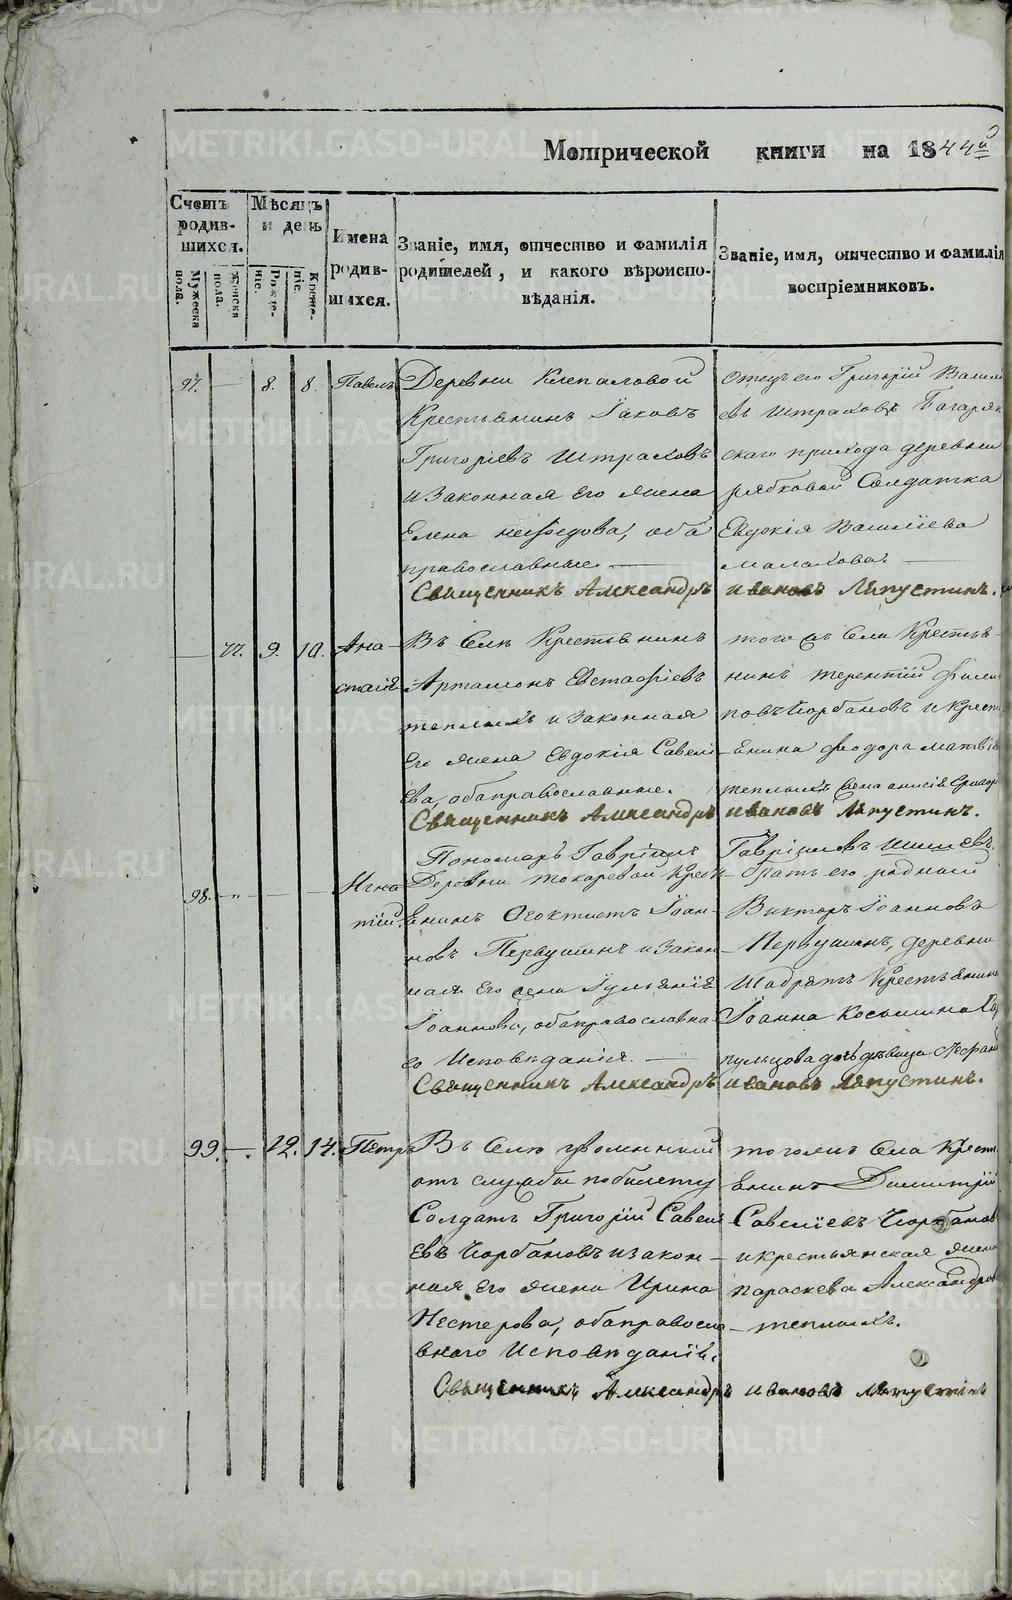 Метрической книги на 1844й
Счетъ родив-шихся.
Мужеска пола.
Женска пола.
Мѣсяцъ и день
Рожде-ніе.
Креще-ніе.
Имена родив-шихся.
Званіе, имя, отчество и фамилія родителей, и какого вѣроиспо-вѣданія.
Званіе, имя, отчество и фамилія воспріемниковъ.
97. — 8. 8. Павелъ
Деревни Клепаловой
Крестьянинъ Іаковъ
Григоріевъ Штраховъ
и Законная его жена
Елена Нефедова, оба
православные.
Отецъ его Григорій Васил
евъ Штраховъ Багаряк
скаго прихода деревни
рябковой Солдатка
Евдокія Василіева
Малахова.
Священникъ Александръ Ивановъ Ляпустинъ.
— 77. 9. 10. Ана
стасія
Въ Селѣ Крестьянинъ
Артамонъ Евстафіевъ
теплыхъ и Законная
его жена Евдокія Савелі
ева, оба православные.
того жъ Села Крестья-
нинъ терентій Фили
повъ Чорбановъ и Крест
янина феодора матвѣ
теплыхъ жена анисія Григор
Священникъ Александръ Ивановъ Ляпустинъ.
Пономарь Гавріилъ Гавріиловъ Шишевъ.
98. — " — — Игна
тій.
Деревни токаревой Крест
янинъ Феоктистъ Іоан-
новъ Первушинъ и Закон
ная его жена Іуліянія
Іоаннова, оба православна
го Исповѣданія.
братъ его родный
Викторъ Іоанновъ
Первушинъ, деревни
Шабратъ Крестьянина
Іоанна Косьмина
дочь дѣвица
Священникъ Александръ Ивановъ Ляпустинъ.
99. — 12. 14. Петръ
Въ Селѣ уволенный
отъ службы по билету
Солдатъ Григорій Савелі
евъ Чорбановъ и закон-
ная его жена Ирина
Нестерова, оба правосла
внаго Исповѣданія.
того жъ Села Крест
янинъ Димитрій
Савеліевъ Чорбановъ
и крестьянская жена
параскева Александров
теплыхъ.
Священникъ Александръ Ивановъ Ляпустинъ
METRIKI.GASO-URAL.RU